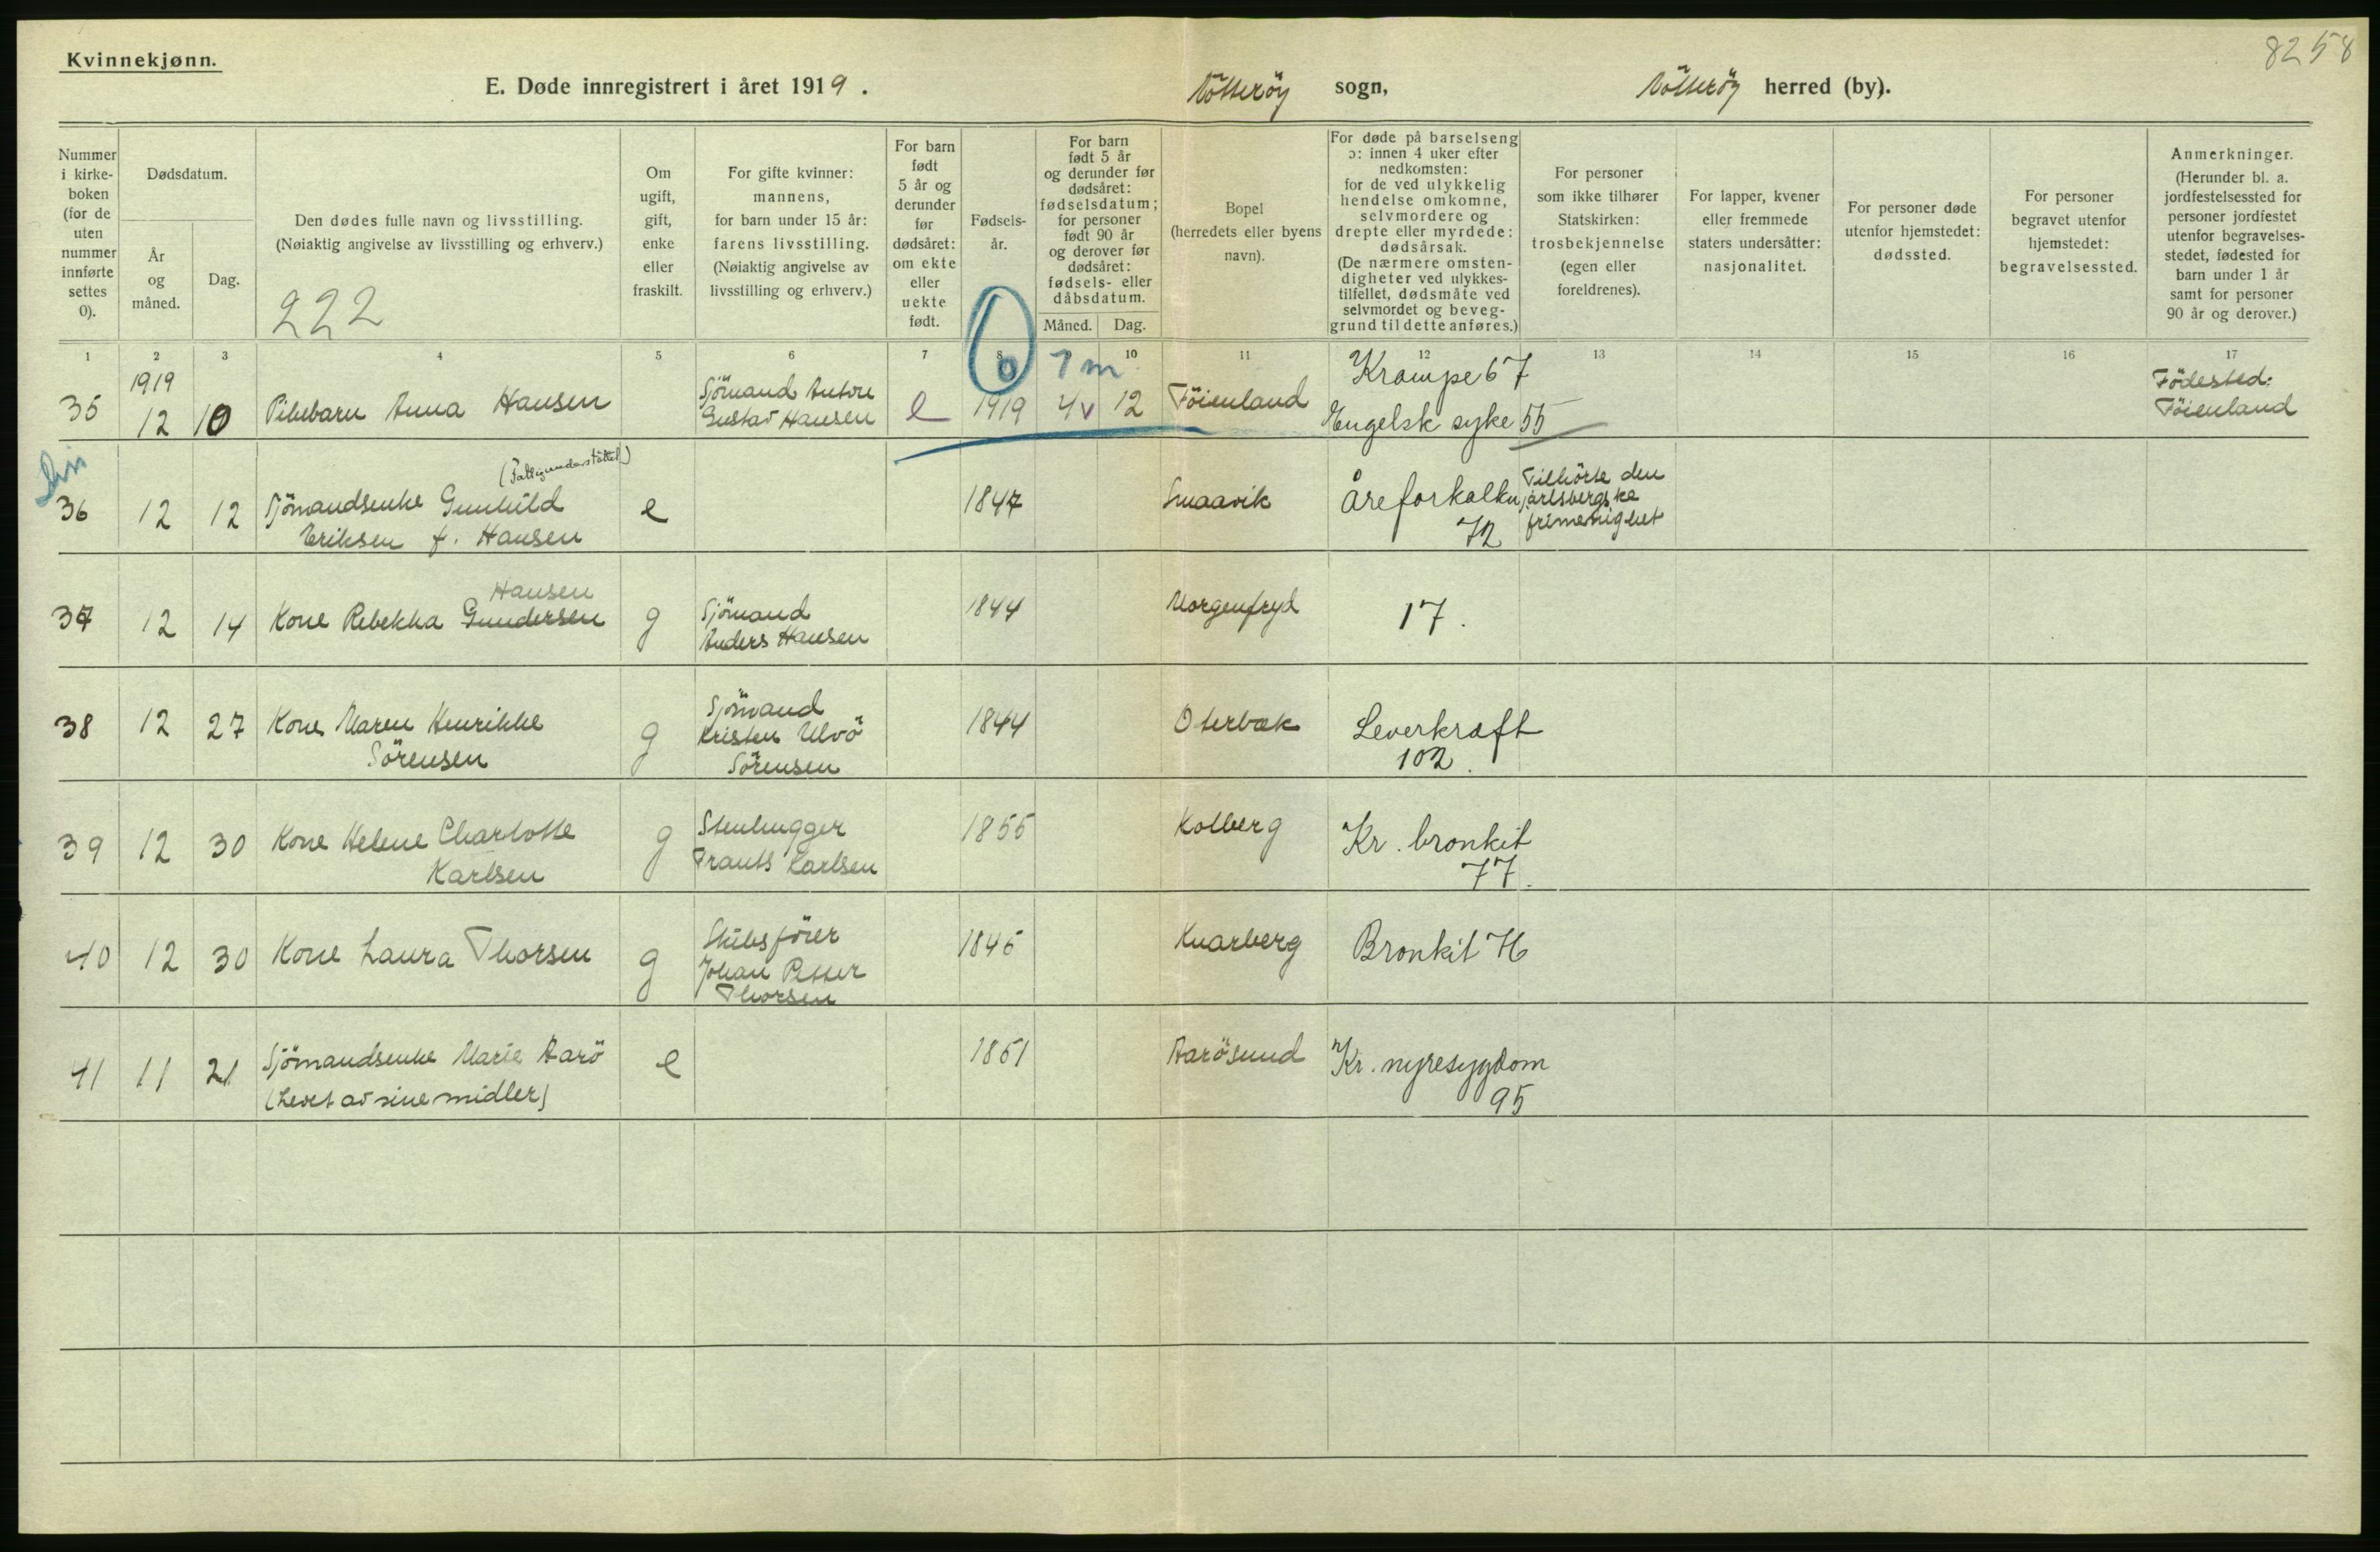 8258
Kvinnekjønn.
E. Døde innregistrert i året 1919.
Nötteröy sogn,
Nötteröy herred (by).
Nummer
i kirke-
boken
(for de
uten
nummer
innførte
settes
0).
Dødsdatum.
År
og
måned.
Dag.
Den dødes fulle navn og livsstilling.
(Nøiaktig angivelse av livsstilling og erhverv.)
222
Om
ugift,
gift,
enke
eller
fraskilt.
For gifte kvinner:
mannens,
for barn under 15 år:
farens livsstilling.
(Nøiaktig angivelse av
livsstilling og erhverv.)
For barn
født
5 år og
derunder
før
dødsåret:
om ekte
eller
uekte
født.
Fødsels-
år.
For barn
født 5 år
og derunder før
dødsåret:
fødselsdatum;
for personer
født 90 år
og derover før
dødsåret:
fødsels- eller
dåbsdatum.
Måned.
Dag.
Bopel
(herredets eller byens
navn).
For døde på barselseng
ɔ: innen 4 uker efter
nedkomsten:
for de ved ulykkelig
hendelse omkomne,
selvmordere og
drepte eller myrdede:
dødsårsak.
(De nærmere omsten-
digheter ved ulykkes-
tilfellet, dødsmåte ved
selvmordet og beveg-
grund til dette anføres.)
For personer
som ikke tilhører
Statskirken:
trosbekjennelse
(egen eller
foreldrenes).
For lapper, kvener
eller fremmede
staters undersåtter:
nasjonalitet.
For personer døde
utenfor hjemstedet:
dødssted.
For personer
begravet utenfor
hjemstedet:
begravelsessted.
Anmerkninger.
(Herunder bl. a.
jordfestelsessted for
personer jordfestet
utenfor begravelses-
stedet, fødested for
barn under 1 år
samt for personer
90 år og derover.)
1 2 3 4 5 6 7 8 10 11 12 13 14 15 16 17
0 7 m
35
1919
12
10
Pikebarn Anna Hansen
Sjömand Antore
Gustav Hansen
e
1919
4 v
12
Föienland
Krampe 67
Engelsk syke 55
Födested:
Föienland
36
12
12
(Fattigunderstöttet)
Sjömandsenke Gunhild
Eriksen f. Hansen
e
1847
Smaavik
Åreforkalkn
72
Tilhörte den
jarlsbergske
frimenighet
37
12
14
Hansen
Kone Rebekka Gundersen
g
Sjömand
Anders Hansen
1844
Morgenfryd
17.
38
12
27
Kone Maren Henrikke
Sörensen
g
Sjömand
Kristen Ulvö
Sörensen
1844
Oterbæk
Leverkræft
102.
39
12
30
Kone Helene Charlotte
Karlsen
g
Stenhugger
Frants Karlsen
1855
Kolberg
Kr. bronkit
77.
40
12
30
Kone Laura Thorsen
g
Skibsförer
Johan Petter
Thorsen
1845
Knarberg
Bronkit 76
41
11
21
Sjömandsenke Marie Aarö
(Levet av sine midler)
e
1851
Aarösund
Kr. nyresygdom
95